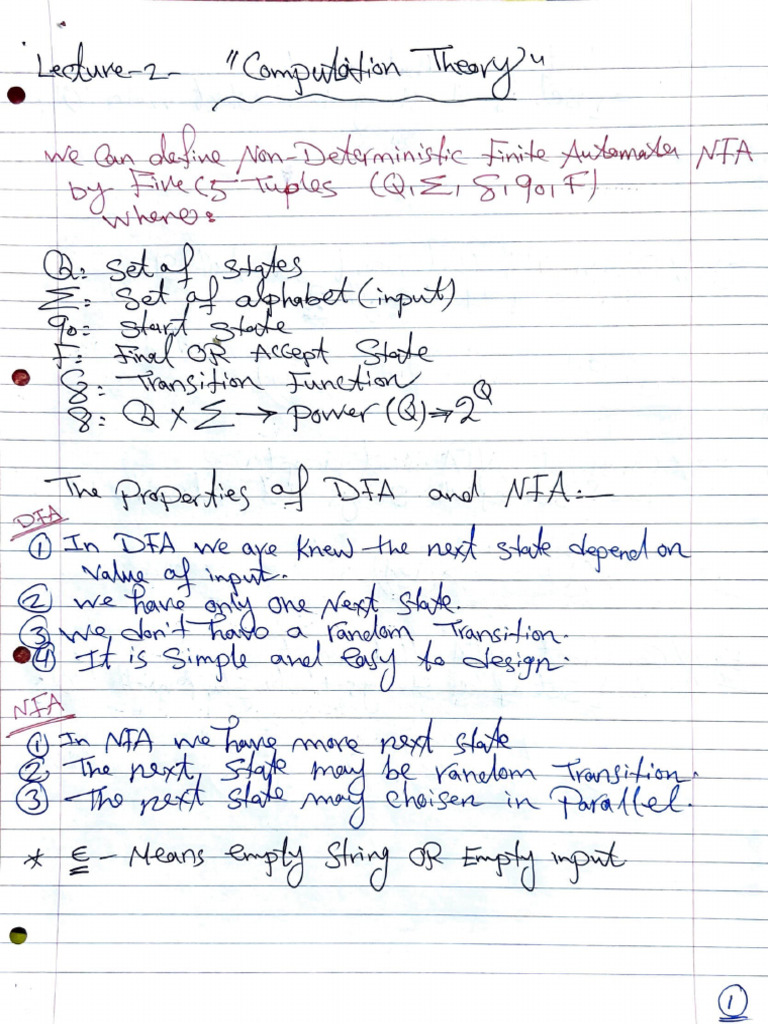 Lecture-2- "Computation Theory"
We Can define Non-Deterministic Finite Automater NFA
by Five (5 Tuples (Q, Σ, δ, q0, F)
Where:
Q: Set of states
Σ: Set of alphabet (input)
q0: Start State
F: Final OR Accept State
δ: Transition Function
δ: Q X Σ → Power (Q) → 2^Q
The Properties of DFA and NFA:-
DFA
① In DFA we are Knew the next state depend on
Value of input.
② We have only one Next State.
③ We don't have a random Transition.
④ It is Simple and easy to design.
NFA
① In NFA we have more next state
② The next State may be random Transition.
③ The next State may choisen in Parallel.
* ε - Means empty String OR Empty input
①